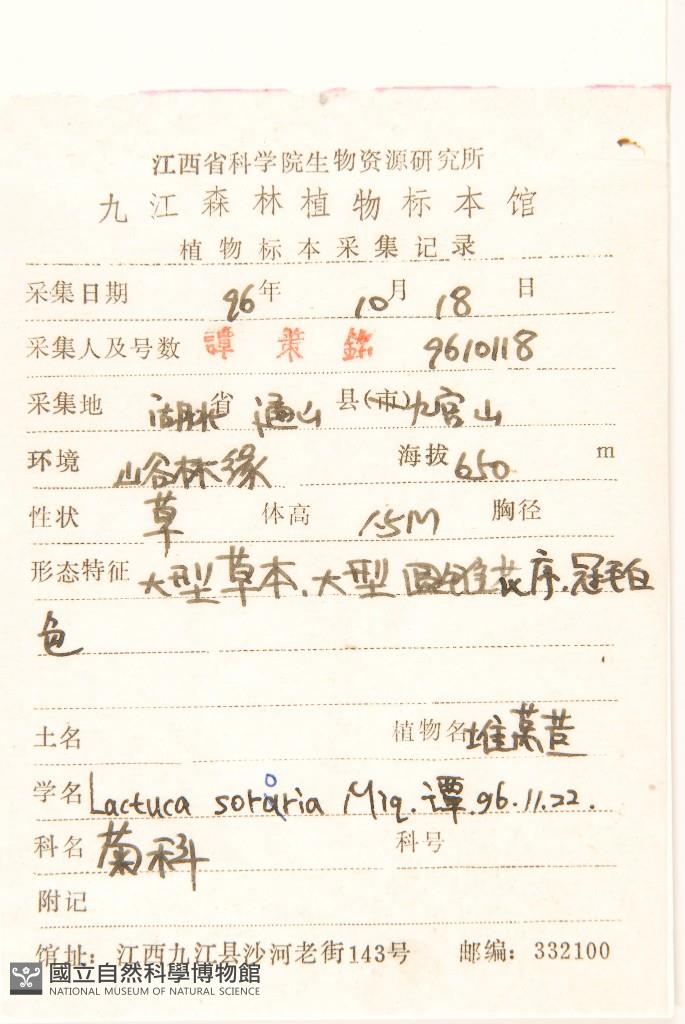 江西省科学院生物资源研究所
九江森林植物标本馆
植物标本采集记录
采集日期 96年 10月 18日
采集人及号数 譚策銘 9610118
采集地 湖北省 通山县(市)九宫山
环境 山谷林缘 海拔650m
性状 草 体高 1.5M 胸径
形态特征 大型草本、大型圆锥花序.冠毛白
色
土名 植物名 堆莴苣
学名 Lactuca soraria Miq. 谭.96.11.22.
科名 菊科 科号
附记
馆址：江西九江县沙河老街143号 邮编：332100
國立自然科學博物館
NATIONAL MUSEUM OF NATURAL SCIENCE